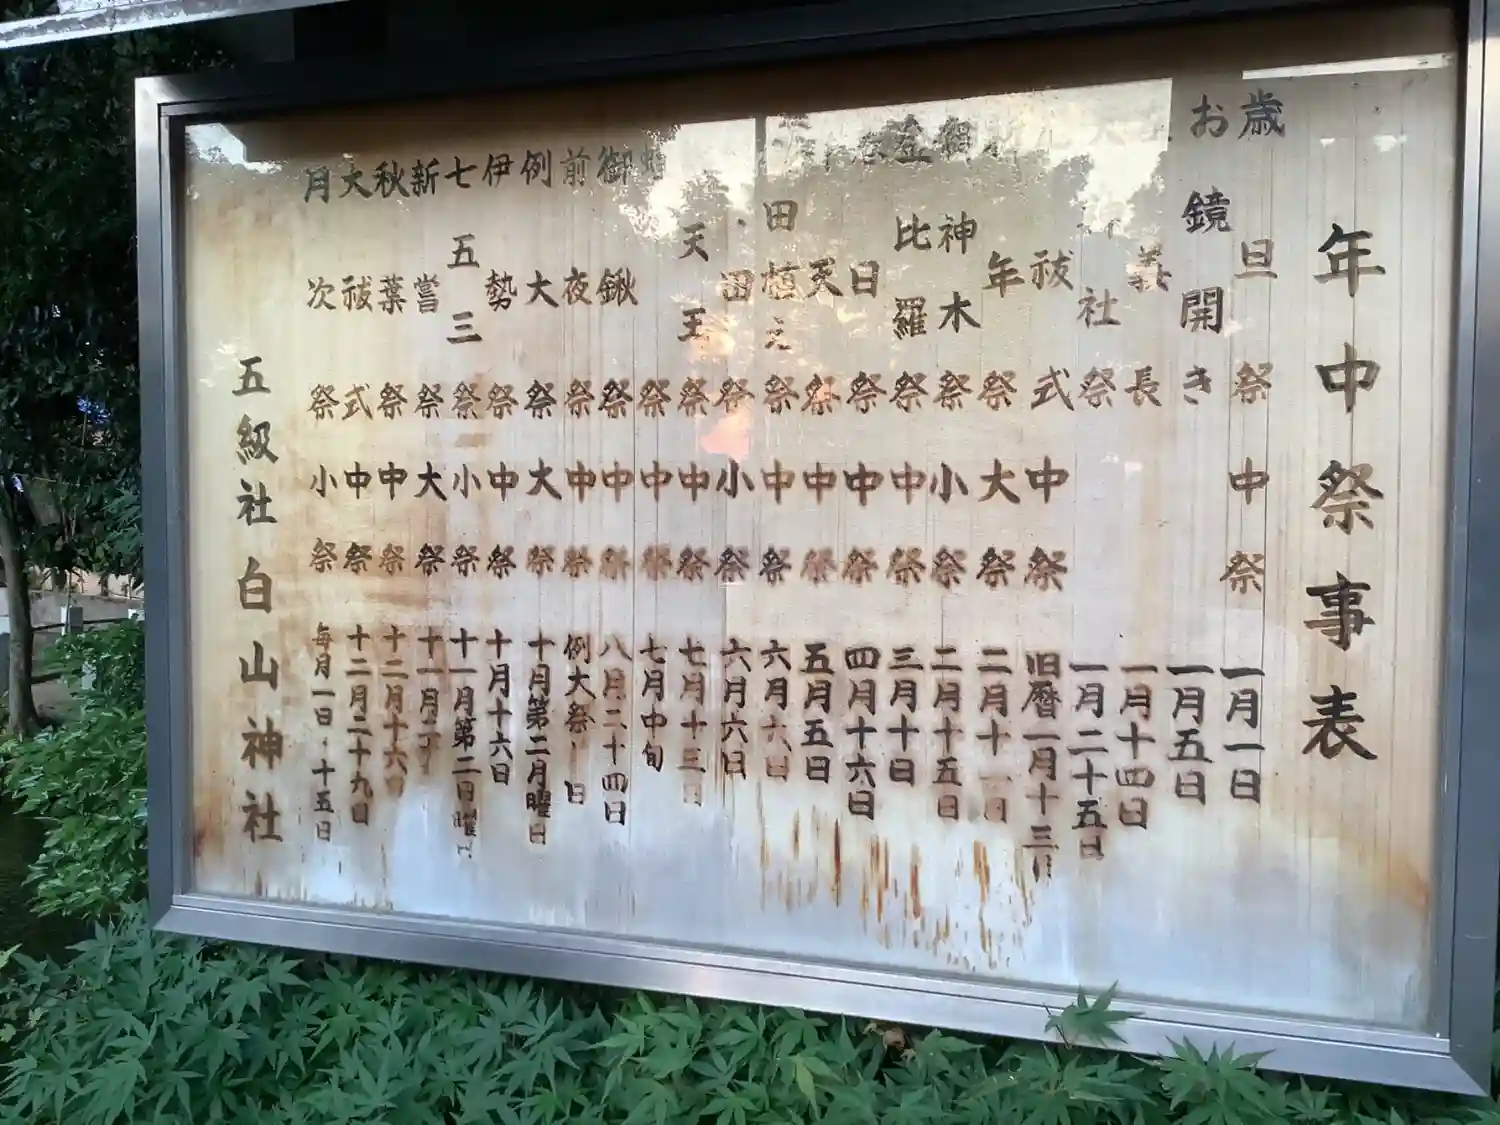 年中祭事表
歳旦祭 中祭 一月一日
お鏡開き 一月五日
義長 一月十四日
社祭 一月二十五日
祓式 中祭 旧暦一月十三日
年祭 大祭 二月十一日
神木祭 小祭 二月十五日
比羅祭 中祭 三月十日
日祭 中祭 四月十六日
天祭 中祭 五月五日
田植之祭 中祭 六月六日
田祭 小祭 六月六日
天王祭 中祭 七月十三日
祭 中祭 七月中旬
御鍬祭 中祭 八月二十四日
前夜祭 中祭 例大祭前日
例大祭 大祭 十月第二月曜日
伊勢祭 中祭 十月十六日
七五三祭 小祭 十一月第二日曜日
新嘗祭 大祭 十一月
秋葉祭 中祭 十二月十六日
大祓式 中祭 十二月二十九日
月次祭 小祭 毎月一日・十五日
五級社 白山神社